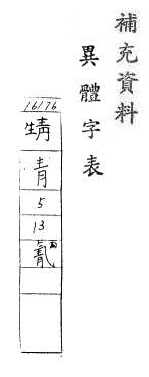 補充資料
異體字表
16176
青
5
13